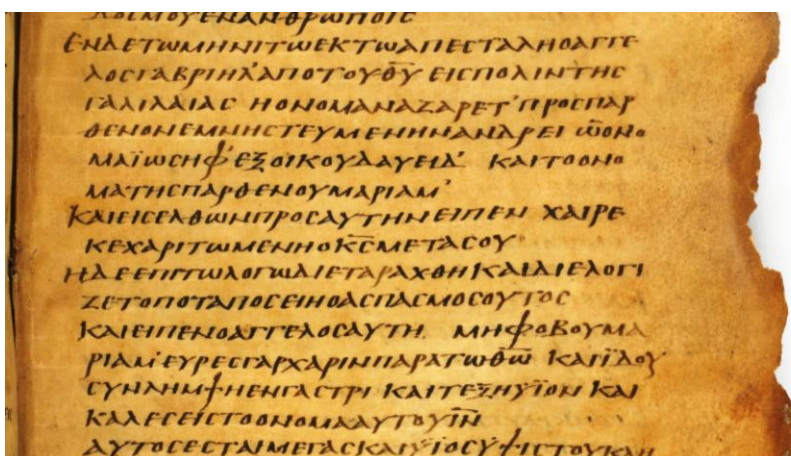 ΛΟСΜΟΥΕΝΑΝΘΡΩΠΟΙС
ΕΝΔΕΤΩΜΗΝΙΤΩΕΚΤΩΑΠΕСΤΑΛΗΟΑΓΓΕ
ΛΟСΓΑΒΡΙΗΛ'ΑΠΟΤΟΥΘ̅Υ̅ ΕΙСΠΟΛΙΝΤΗС
ΓΑΛΙΛΑΙΑС ΗΟΝΟΜΑΝΑΖΑΡΕΤ' ΠΡΟСΠΑΡ
ΘΕΝΟΝΕΜΝΗСΤΕΥΜΕΝΗΝΑΝΔΡΕΙ ΩΟΝΟ
ΜΑΪΩСΗΦ' ΕΞΟΙΚΟΥΔΑΥΕΙΔ' ΚΑΙΤΟΟΝΟ
ΜΑΤΗСΠΑΡΘΕΝΟΥΜΑΡΙΑΜ'
ΚΑΙΕΙСΕΛΘΩΝΠΡΟСΑΥΤΗΝΕΙΠΕΝ ΧΑΙΡΕ
ΚΕΧΑΡΙΤΩΜΕΝΗΟΚ̅С̅ΜΕΤΑСΟΥ
ΗΔΕΕΠΙΤΩΛΟΓΩΔΙΕΤΑΡΑΧΘΗΚΑΙΔΙΕΛΟΓΙ
ΖΕΤΟΠΟΤΑΠΟСΕΙΗΟΑСΠΑСΜΟСΟΥΤΟС
ΚΑΙΕΙΠΕΝΟΑΓΓΕΛΟСΑΥΤΗ ΜΗΦΟΒΟΥΜΑ
ΡΙΑΜ' ΕΥΡΕСΓΑΡΧΑΡΙΝΠΑΡΑΤΩΘ̅Ω̅ ΚΑΙΪΔΟΥ
СΥΝΛΗΜΨΗΕΝΓΑСΤΡΙ ΚΑΙΤΕΞΗΥΪΟΝ ΚΑΙ
ΚΑΛΕСΕΙСΤΟΟΝΟΜΑΑΥΤΟΥΙ̅Ν̅
ΑΥΤΟСΕСΤΑΙΜΕΓΑСΚΑΙΥΪΟСΥΨΙСΤΟΥΚΛΗ